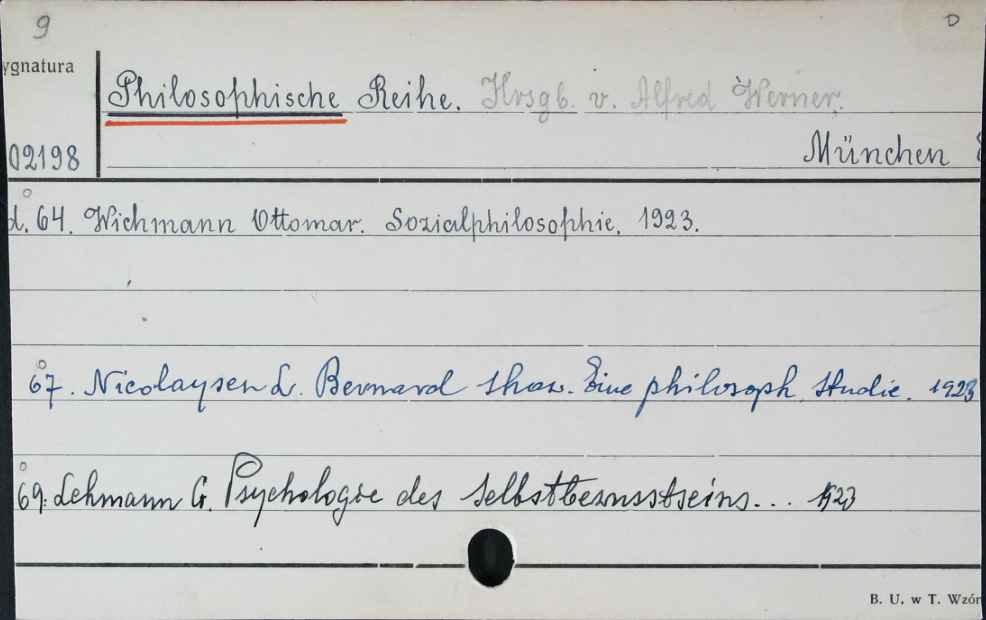 9 D
ygnatura
Philosophische Reihe. Hrsgb. v. Alfred Werner.
02198 München
d. 64. Wichmann Ottomar. Sozialphilosophie. 1923.
67. Nicolaysen L. Bernard Shaw. Eine philosoph. Studie. 1923
69. Lehmann G. Psychologie des Selbstbewusstseins... 1923
B. U. w T. Wzór